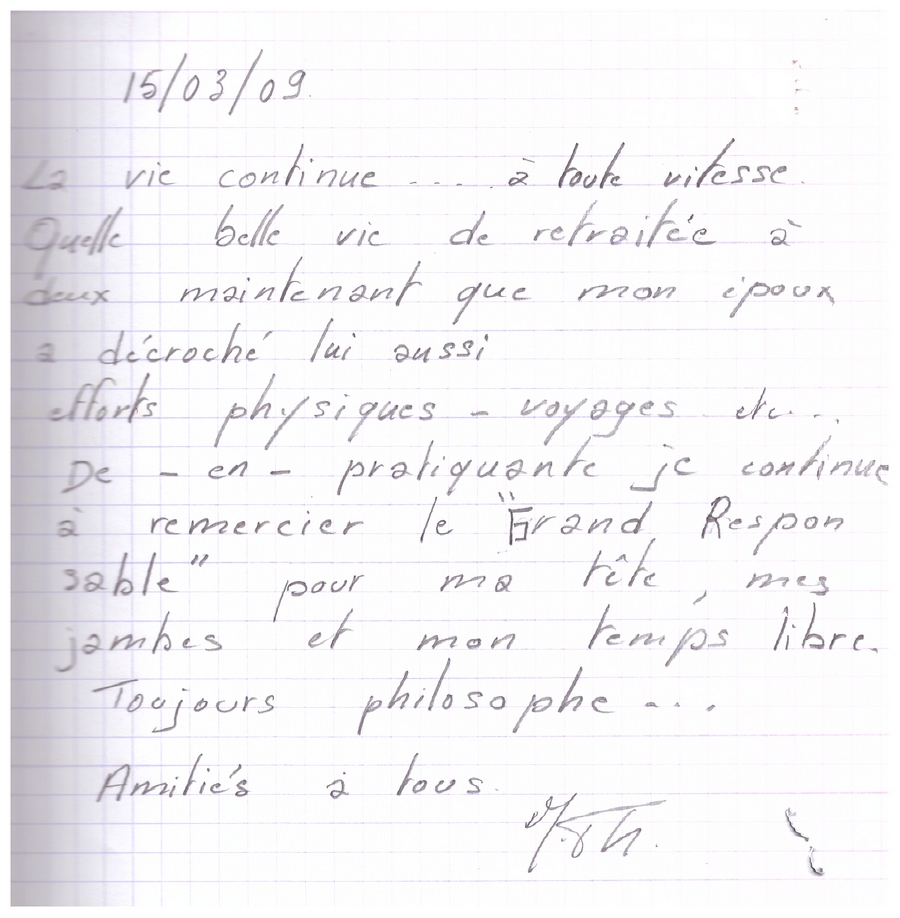 15/03/09.
La vie continue .... à toute vitesse.
Quelle belle vie de retraitée à
deux maintenant que mon époux
a décroché lui aussi
efforts physiques - voyages etc...
De - en - pratiquante je continue
à remercier le "Grand Respon
sable" pour ma tête, mes
jambes et mon temps libre.
Toujours philosophe ...
Amitiés à tous.